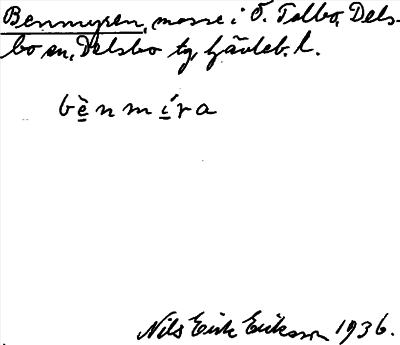 Benmyren, mosse i Ö. Tolbo, Dels-
bo sn, Delsbo tg, Gävleb. l.
bènmíra
Nils Eirk Erikson 1936.